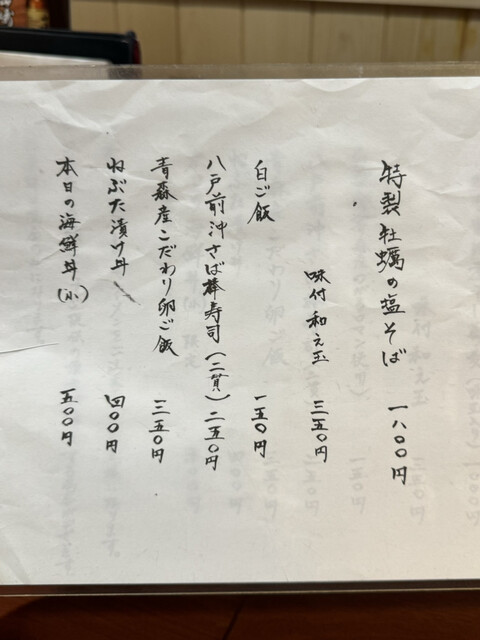 特製牡蠣の塩そば 一八〇〇円
味付和え玉 三五〇円
白ご飯 一五〇円
八戸前沖さば棒寿司(二貫)二五〇円
青森産こだわり卵ご飯 三五〇円
ねぶた漬け丼 四〇〇円
本日の海鮮丼(小) 五〇〇円